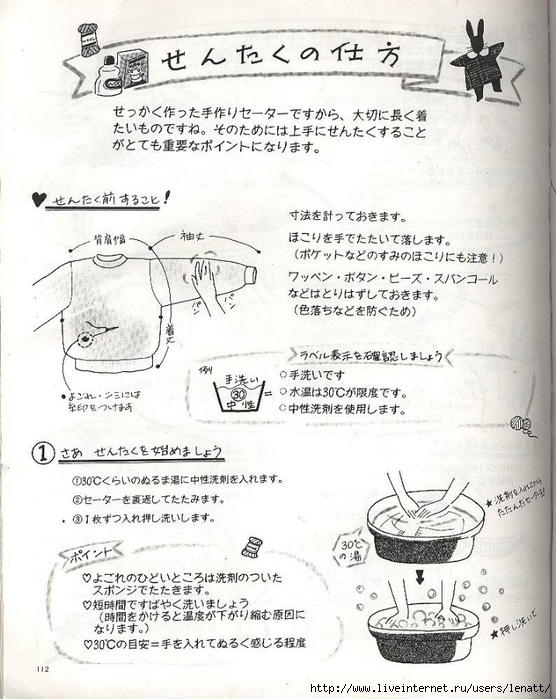 せんたくの仕方
せっかく作った手作りセーターですから、大切に長く着
たいものですね。そのためには上手にせんたくすること
がとても重要なポイントになります。
♥せんたく前すること!
寸法を計っておきます。
ほこりを手でたたいて落します。
(ポケットなどのすみのほこりにも注意!)
ワッペン・ボタン・ビーズ・スパンコール
などはとりはずしておきます。
(色落ちなどを防ぐため)
背肩幅
袖丈
パン
パン
着丈
●よごれ・シミには
糸印をつけます
ラベル表示を確認しましょう
例
手洗い
30
中性
=
○手洗いです
○水温は30℃が限度です。
○中性洗剤を使用します。
①さあ せんたくを始めましょう
①30℃くらいのぬるま湯に中性洗剤を入れます。
②セーターを裏返してたたみます。
③1枚ずつ入れ押し洗いします。
★洗剤を入れてから
たたんだセーターを!
30℃の湯
ポイント
♡よごれのひどいところは洗剤のついた
スポンジでたたきます。
♡短時間ですばやく洗いましょう
(時間をかけると温度が下がり縮む原因に
なります。)
♡30℃の目安=手を入れてぬるく感じる程度
★押し洗いで
112
http://www.liveinternet.ru/users/lenatt/